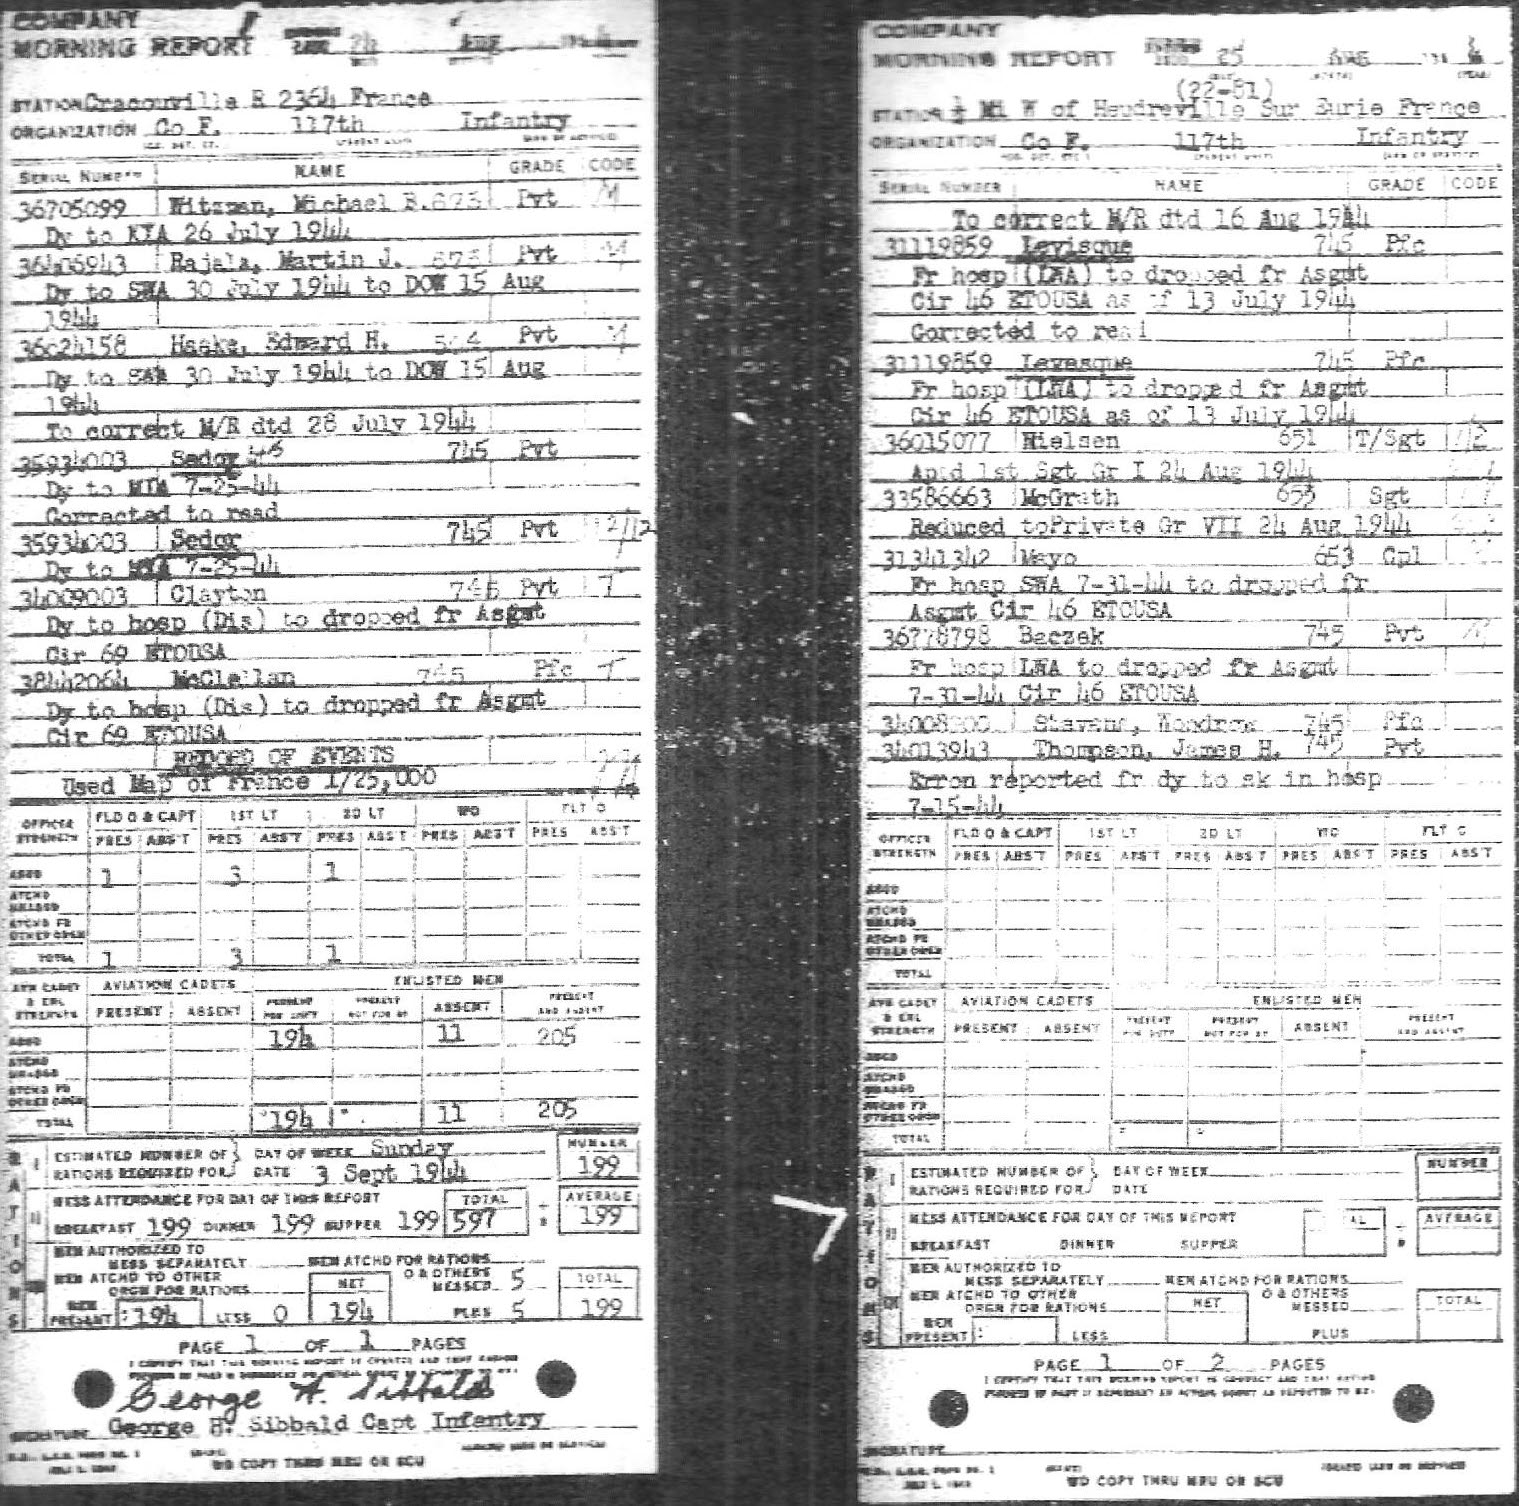 COMPANY
MORNING REPORT 24 Aug
STATION Cracouville R 2364 France
ORGANIZATION Co F. 117th Infantry
SERIAL NUMBER NAME GRADE CODE
36705099 Witzman, Michael B. 675 Pvt M
Dy to KIA 26 July 1944
36406943 Rajala, Martin J. 675 Pvt M
Dy to SWA 30 July 1944 to DOW 15 Aug
1944
Haake, Edward H. 504 Pvt
Dy to SWA 30 July 1944 to DOW 15 Aug
1944
To correct M/R dtd 28 July 1944
35934003 Sedoy 745 Pvt
Dy to MIA 7-25-44
Corrected to read
35934003 Sedor 745 Pvt
Dy to MIA 7-25-44
34009003 Clayton 745 Pvt T
Dy to hosp (Dis) to dropped fr Asgmt
Cir 69 ETOUSA
38442064 McClellan 745 Pfc T
Dy to hosp (Dis) to dropped fr Asgmt
Cir 69 ETOUSA
RECORD OF EVENTS
Used Map of France 1/25,000
OFFICER STRENGTH FLD O & CAPT 1ST LT 2D LT WO FLT O
PRES ABS'T PRES ABS'T PRES ABS'T PRES ABS'T PRES ABS'T
ASGD 1 3 1
ATCHD UNASGD
ATCHD FR OTHER ORGN
TOTAL 1 3 1
AVN CADET & ENL STRENGTH AVIATION CADETS ENLISTED MEN
PRESENT ABSENT PRESENT FOR DUTY PRESENT NOT FOR DY ABSENT PRESENT AND ABSENT
ASGD 194 11 205
ATCHD UNASGD
ATCHD FR OTHER ORGN
TOTAL 194 11 205
RATIONS
I ESTIMATED NUMBER OF RATIONS REQUIRED FOR DAY OF WEEK Sunday NUMBER
DATE 3 Sept 1944 199
II MESS ATTENDANCE FOR DAY OF THIS REPORT TOTAL AVERAGE
BREAKFAST 199 DINNER 199 SUPPER 199 597 ÷ 3 199
III MEN AUTHORIZED TO MESS SEPARATELY MEN ATCHD FOR RATIONS
MEN ATCHD TO OTHER ORGN FOR RATIONS NET O & OTHERS MESSED 5 TOTAL
MEN PRESENT: 194 LESS 0 194 PLUS 5 199
PAGE 1 OF 1 PAGES
I CERTIFY THAT THIS MORNING REPORT IS CORRECT AND THAT RATION
George H. Sibbald
SIGNATURE George H. Sibbald Capt Infantry
WD COPY THRU MRU OR SCU
COMPANY
MORNING REPORT 25 AUG
(22-81)
STATION ½ Mi W of Heudreville Sur Eurie France
ORGANIZATION Co F. 117th Infantry
SERIAL NUMBER NAME GRADE CODE
To correct M/R dtd 16 Aug 1944
31119859 Levisque 745 Pfc
Fr hosp (LWA) to dropped fr Asgmt
Cir 46 ETOUSA as of 13 July 1944
Corrected to read
31119859 Levesque 745 Pfc
Fr hosp (LWA) to dropped fr Asgmt
Cir 46 ETOUSA as of 13 July 1944
36015077 Nielsen 651 T/Sgt
Aptd 1st Sgt Gr I 24 Aug 1944
33586663 McGrath 653 Sgt
Reduced toPrivate Gr VII 24 Aug 1944
31341342 Mayo 653 Cpl
Fr hosp SWA 7-31-44 to dropped fr
Asgmt Cir 46 ETOUSA
36778798 Baczek 745 Pvt
Fr hosp LWA to dropped fr Asgmt
7-31-44 Cir 46 ETOUSA
Stevens, Woodrow 745 Pfc
34013943 Thompson, James H. 745 Pvt
Erron reported fr dy to sk in hosp
7-15-44
OFFICER STRENGTH FLD O & CAPT 1ST LT 2D LT WO FLT O
PRES ABS'T PRES ABS'T PRES ABS'T PRES ABS'T PRES ABS'T
ASGD
ATCHD UNASGD
ATCHD FR OTHER ORGN
TOTAL
AVN CADET & ENL STRENGTH AVIATION CADETS ENLISTED MEN
PRESENT ABSENT PRESENT FOR DUTY PRESENT NOT FOR DY ABSENT PRESENT AND ABSENT
ASGD
ATCHD UNASGD
ATCHD FR OTHER ORGN
TOTAL
RATIONS
I ESTIMATED NUMBER OF RATIONS REQUIRED FOR DAY OF WEEK NUMBER
DATE
II MESS ATTENDANCE FOR DAY OF THIS REPORT AVERAGE
BREAKFAST DINNER SUPPER
III MEN AUTHORIZED TO MESS SEPARATELY MEN ATCHD FOR RATIONS
MEN ATCHD TO OTHER ORGN FOR RATIONS NET O & OTHERS MESSED TOTAL
MEN PRESENT: LESS PLUS
PAGE 1 OF 2 PAGES
I CERTIFY THAT THIS MORNING REPORT IS CORRECT AND THAT RATION
SIGNATURE
WD COPY THRU MRU OR SCU